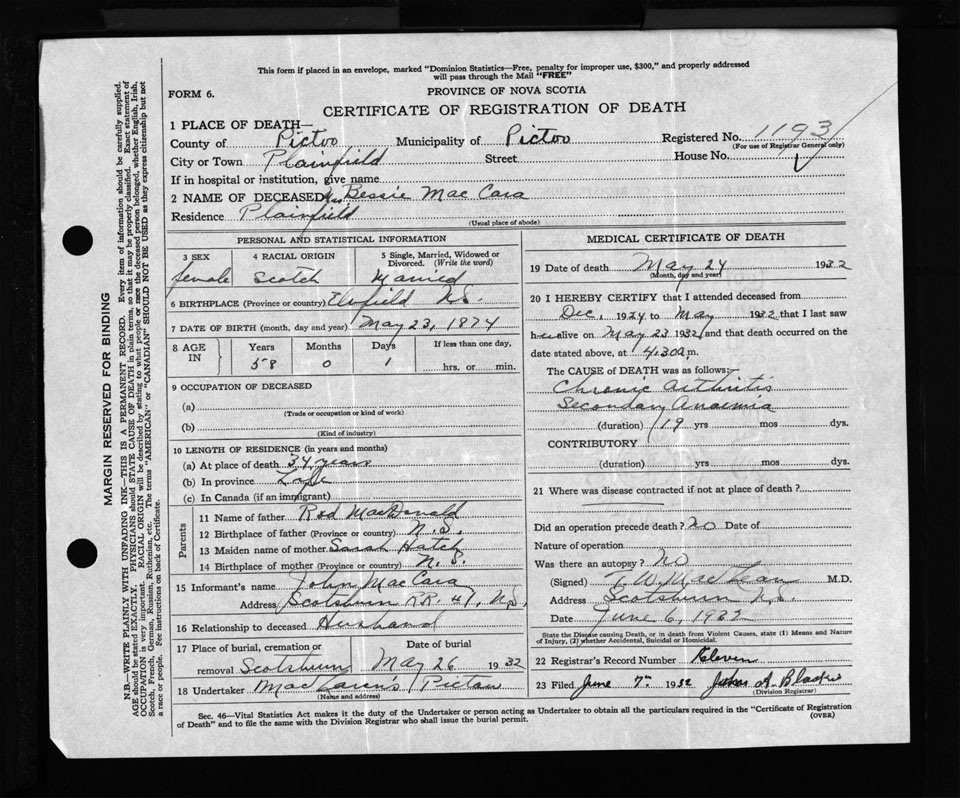 This form if placed in an envelope, marked "Dominion Statistics—Free, penalty for improper use, $300," and properly addressed
will pass through the Mail "FREE"
FORM 6.
PROVINCE OF NOVA SCOTIA
CERTIFICATE OF REGISTRATION OF DEATH
1 PLACE OF DEATH—
County of Pictou Municipality of Pictou Registered No. 1193
(For use of Registrar General only)
City or Town Plainfield Street House No.
If in hospital or institution, give name
2 NAME OF DECEASED Mrs Bessie Mac Cara
Residence Plainfield
(Usual place of abode)
PERSONAL AND STATISTICAL INFORMATION
3 SEX 4 RACIAL ORIGIN 5 Single, Married, Widowed or
Divorced. (Write the word)
female Scotch Married
6 BIRTHPLACE (Province or country) N.S.
7 DATE OF BIRTH (month, day and year) May 23, 1874
8 AGE IN Years Months Days If less than one day,
58 0 1 hrs. or min.
9 OCCUPATION OF DECEASED
(a)
(Trade or occupation or kind of work)
(b)
(Kind of industry)
10 LENGTH OF RESIDENCE (in years and months)
(a) At place of death 34 years
(b) In province Life
(c) In Canada (if an immigrant)
Parents
11 Name of father Rod MacDonald
12 Birthplace of father (Province or country) N.S.
13 Maiden name of mother Sarah Hatch
14 Birthplace of mother (Province or country) N.S.
15 Informant's name John Mac Cara
Address Scotsburn R.R. #1, N.S.
16 Relationship to deceased Husband
17 Place of burial, cremation or Date of burial
removal Scotsburn May 26 1932
18 Undertaker MacLaren's Pictou
(Name and address)
MEDICAL CERTIFICATE OF DEATH
19 Date of death May 24 1932
(Month, day and year)
20 I HEREBY CERTIFY that I attended deceased from
Dec, 1924 to May 1932 that I last saw
h er alive on May 23 1932 and that death occurred on
date stated above, at 4.30 a m.
The CAUSE of DEATH was as follows:
Chronic arthritis
Secondary Anaemia
(duration) 19 yrs mos dys.
CONTRIBUTORY
(duration) yrs. mos. dys.
21 Where was disease contracted if not at place of death?
Did an operation precede death? No Date of
Nature of operation
Was there an autopsy? No
(Signed) T. W. MacLean M.D.
Address Scotsburn N.S.
Date June 6, 1932
State the Disease causing Death, or in death from Violent Causes, state (1) Means and Nature
of Injury, (2) whether Accidental, Suicidal or Homicidal.
22 Registrar's Record Number Eleven
23 Filed June 7th 1932
(Division Registrar)
Sec. 46—Vital Statistics Act makes it the duty of the Undertaker or person acting as Undertaker to obtain all the particulars required in the "Certificate of Registration
of Death" and to file the same with the Division Registrar who shall issue the burial permit. (OVER)
MARGIN RESERVED FOR BINDING
N.B.—WRITE PLAINLY WITH UNFADING INK—THIS IS A PERMANENT RECORD. Every item of information should be carefully supplied.
AGE should be stated EXACTLY. PHYSICIANS should STATE CAUSE OF DEATH in plain terms, so that it may be properly classified. Exact statement of
OCCUPATION is very important. RACIAL ORIGIN will be described by stating to what people or race the deceased person belonged, whether English, Irish,
Scotch, French, German, Russian, Ruthenian, etc. The terms "AMERICAN" or "CANADIAN" SHOULD NOT BE USED as they express citizenship but not
a race or people. See instructions on back of Certificate.